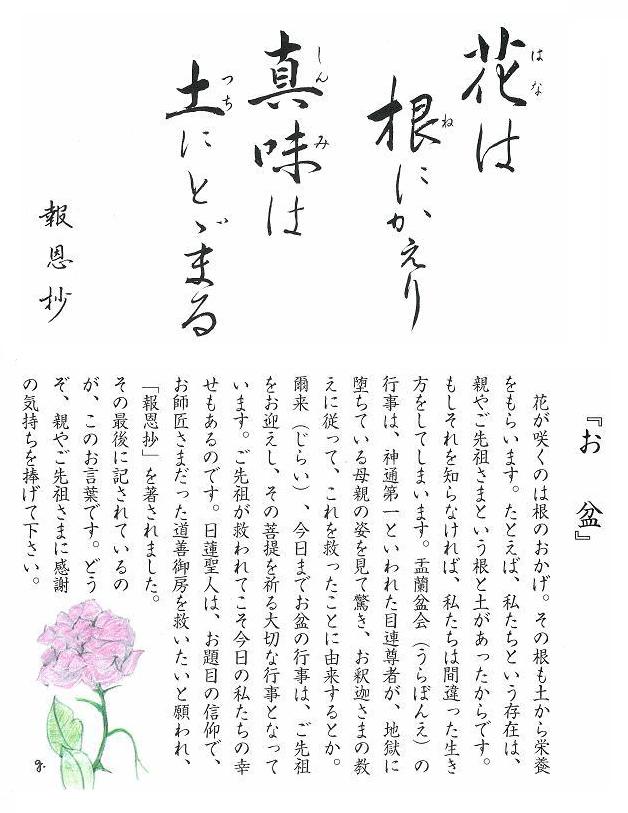 花は
根にかえり
真味は
土にとゞまる
報恩抄
『お 盆』
花が咲くのは根のおかげ。その根も土から栄養
をもらいます。たとえば、私たちという存在は、
親やご先祖さまという根と土があったからです。
もしそれを知らなければ、私たちは間違った生き
方をしてしまいます。盂蘭盆会（うらぼんえ）の
行事は、神通第一といわれた目連尊者が、地獄に
堕ちている母親の姿を見て驚き、お釈迦さまの教
えに従って、これを救ったことに由来するとか。
爾来（じらい）、今日までお盆の行事は、ご先祖
をお迎えし、その菩提を祈る大切な行事となって
います。ご先祖が救われてこそ今日の私たちの幸
せもあるのです。日蓮聖人は、お題目の信仰で、
お師匠さまだった道善御房を救いたいと願われ、
「報恩抄」を著されました。
その最後に記されているの
が、このお言葉です。どう
ぞ、親やご先祖さまに感謝
の気持ちを捧げて下さい。
g.